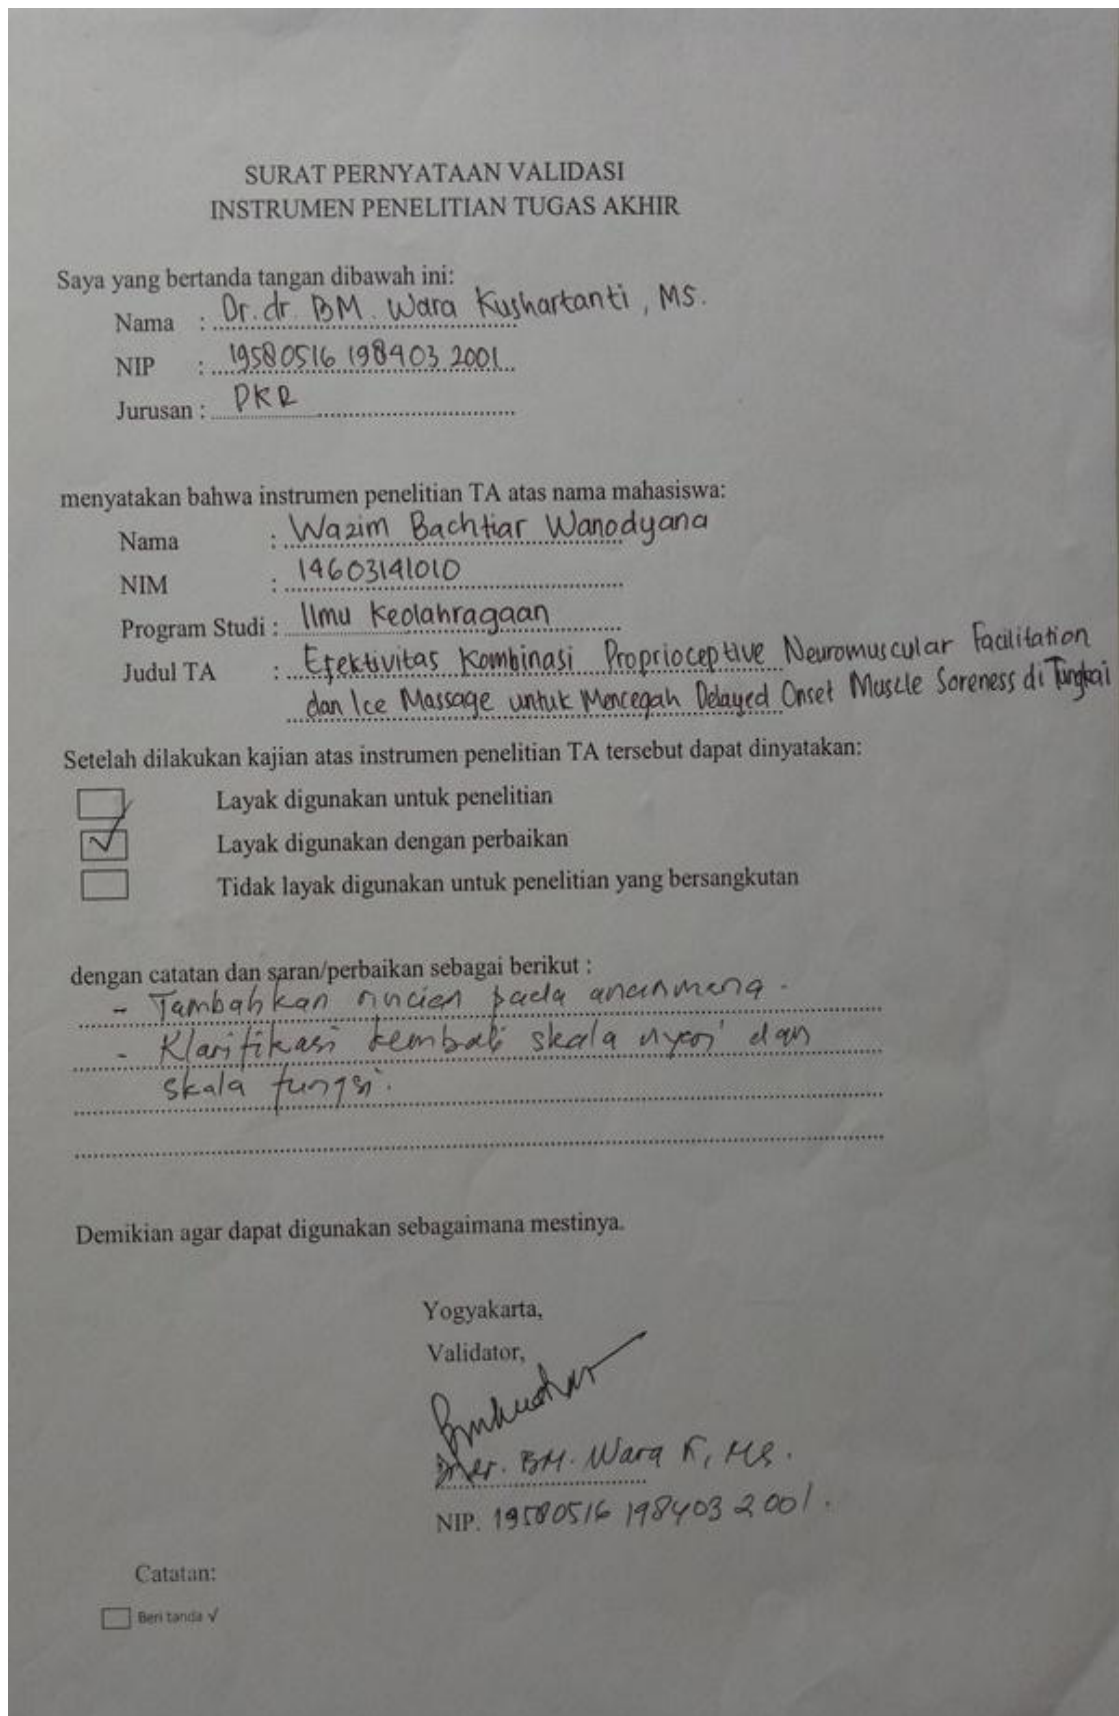 SURAT PERNYATAAN VALIDASI
INSTRUMEN PENELITIAN TUGAS AKHIR
Saya yang bertanda tangan dibawah ini:
Nama : Dr. dr. BM. Wara Kushartanti, MS.
NIP : 19580516 198403 2001
Jurusan : PKR
menyatakan bahwa instrumen penelitian TA atas nama mahasiswa:
Nama : Wazim Bachtiar Wanodyana
NIM : 14603141010
Program Studi : Ilmu Keolahragaan
Judul TA : Efektivitas Kombinasi Proprioceptive Neuromuscular Facilitation
dan Ice Massage untuk Mencegah Delayed Onset Muscle Soreness di Tungkai
Setelah dilakukan kajian atas instrumen penelitian TA tersebut dapat dinyatakan:
Layak digunakan untuk penelitian
√ Layak digunakan dengan perbaikan
Tidak layak digunakan untuk penelitian yang bersangkutan
dengan catatan dan saran/perbaikan sebagai berikut :
- Tambahkan rincian pada
- Klarifikasi kembali skala nyeri dan
skala fungsi.
Demikian agar dapat digunakan sebagaimana mestinya.
Yogyakarta,
Validator,
BM. Wara K, MS.
NIP. 19580516 198403 2001.
Catatan:
Beri tanda √